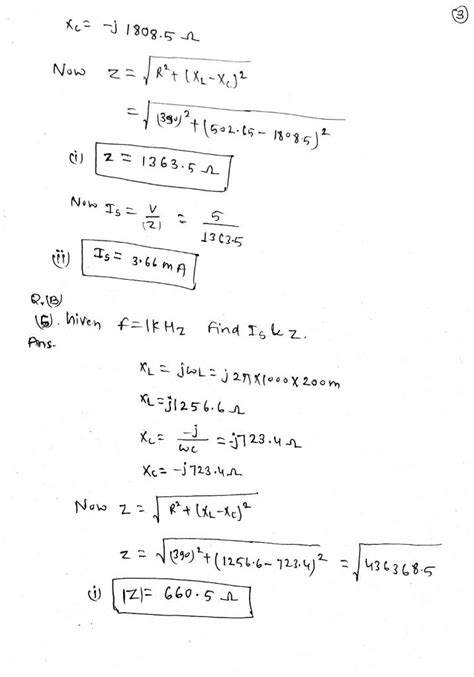 3
Xc = -j 1808.5 Ω
Now Z = √R² + (XL - Xc)²
= √(390)² + (502.65 - 1808.5)²
(i) Z = 1363.5 Ω
Now Is = V/|Z| = 5/1363.5
(ii) Is = 3.66 mA
Q.(B)
(5). Given f = 1kHz Find Is & Z.
Ans.
XL = jωL = j2π×1000×200m
XL = j1256.6 Ω
Xc = -j/ωc = -j723.4 Ω
Xc = -j723.4 Ω
Now Z = √R² + (XL - Xc)²
Z = √(390)² + (1256.6 - 723.4)² = √436368.5
(i) |Z| = 660.5 Ω